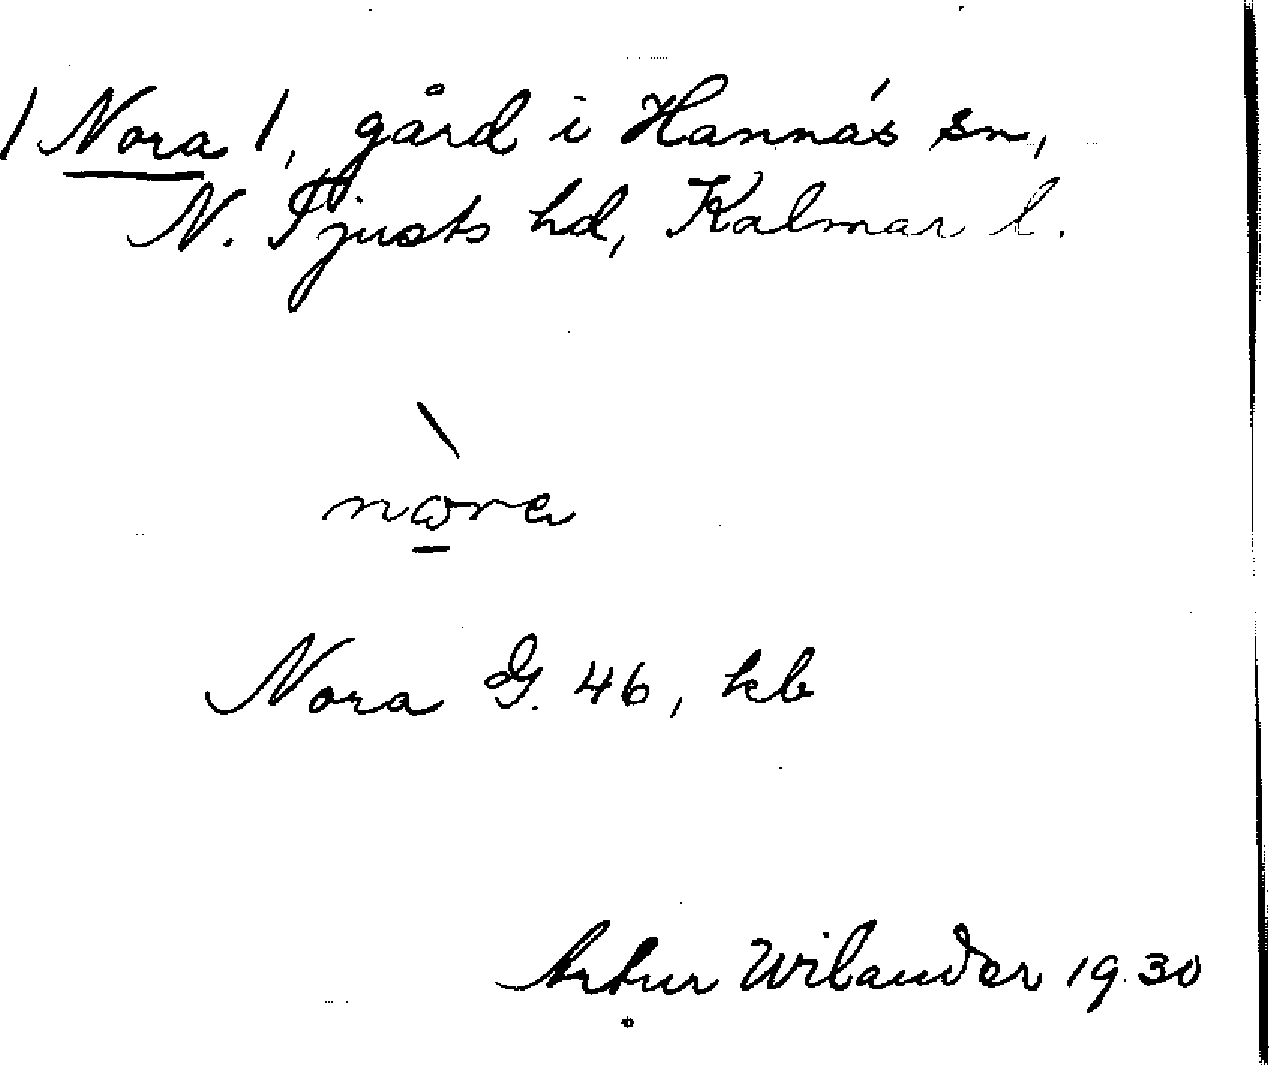 /Nora/, gård i Hannäs sn,
N. Tjusts hd, Kalmar l.
nωra
Nora G. 46, kb
Artur Wilander 1930